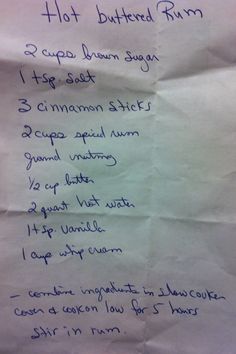 Hot buttered Rum
2 cups brown sugar
1 tsp. salt
3 cinnamon sticks
2 cups spiced rum
ground nutmeg
1/2 cup butter
2 quart hot water
1 tsp. vanilla
1 cup whip cream
- combine ingredients in slow cooker
cover & cook on low for 5 hours
stir in rum.